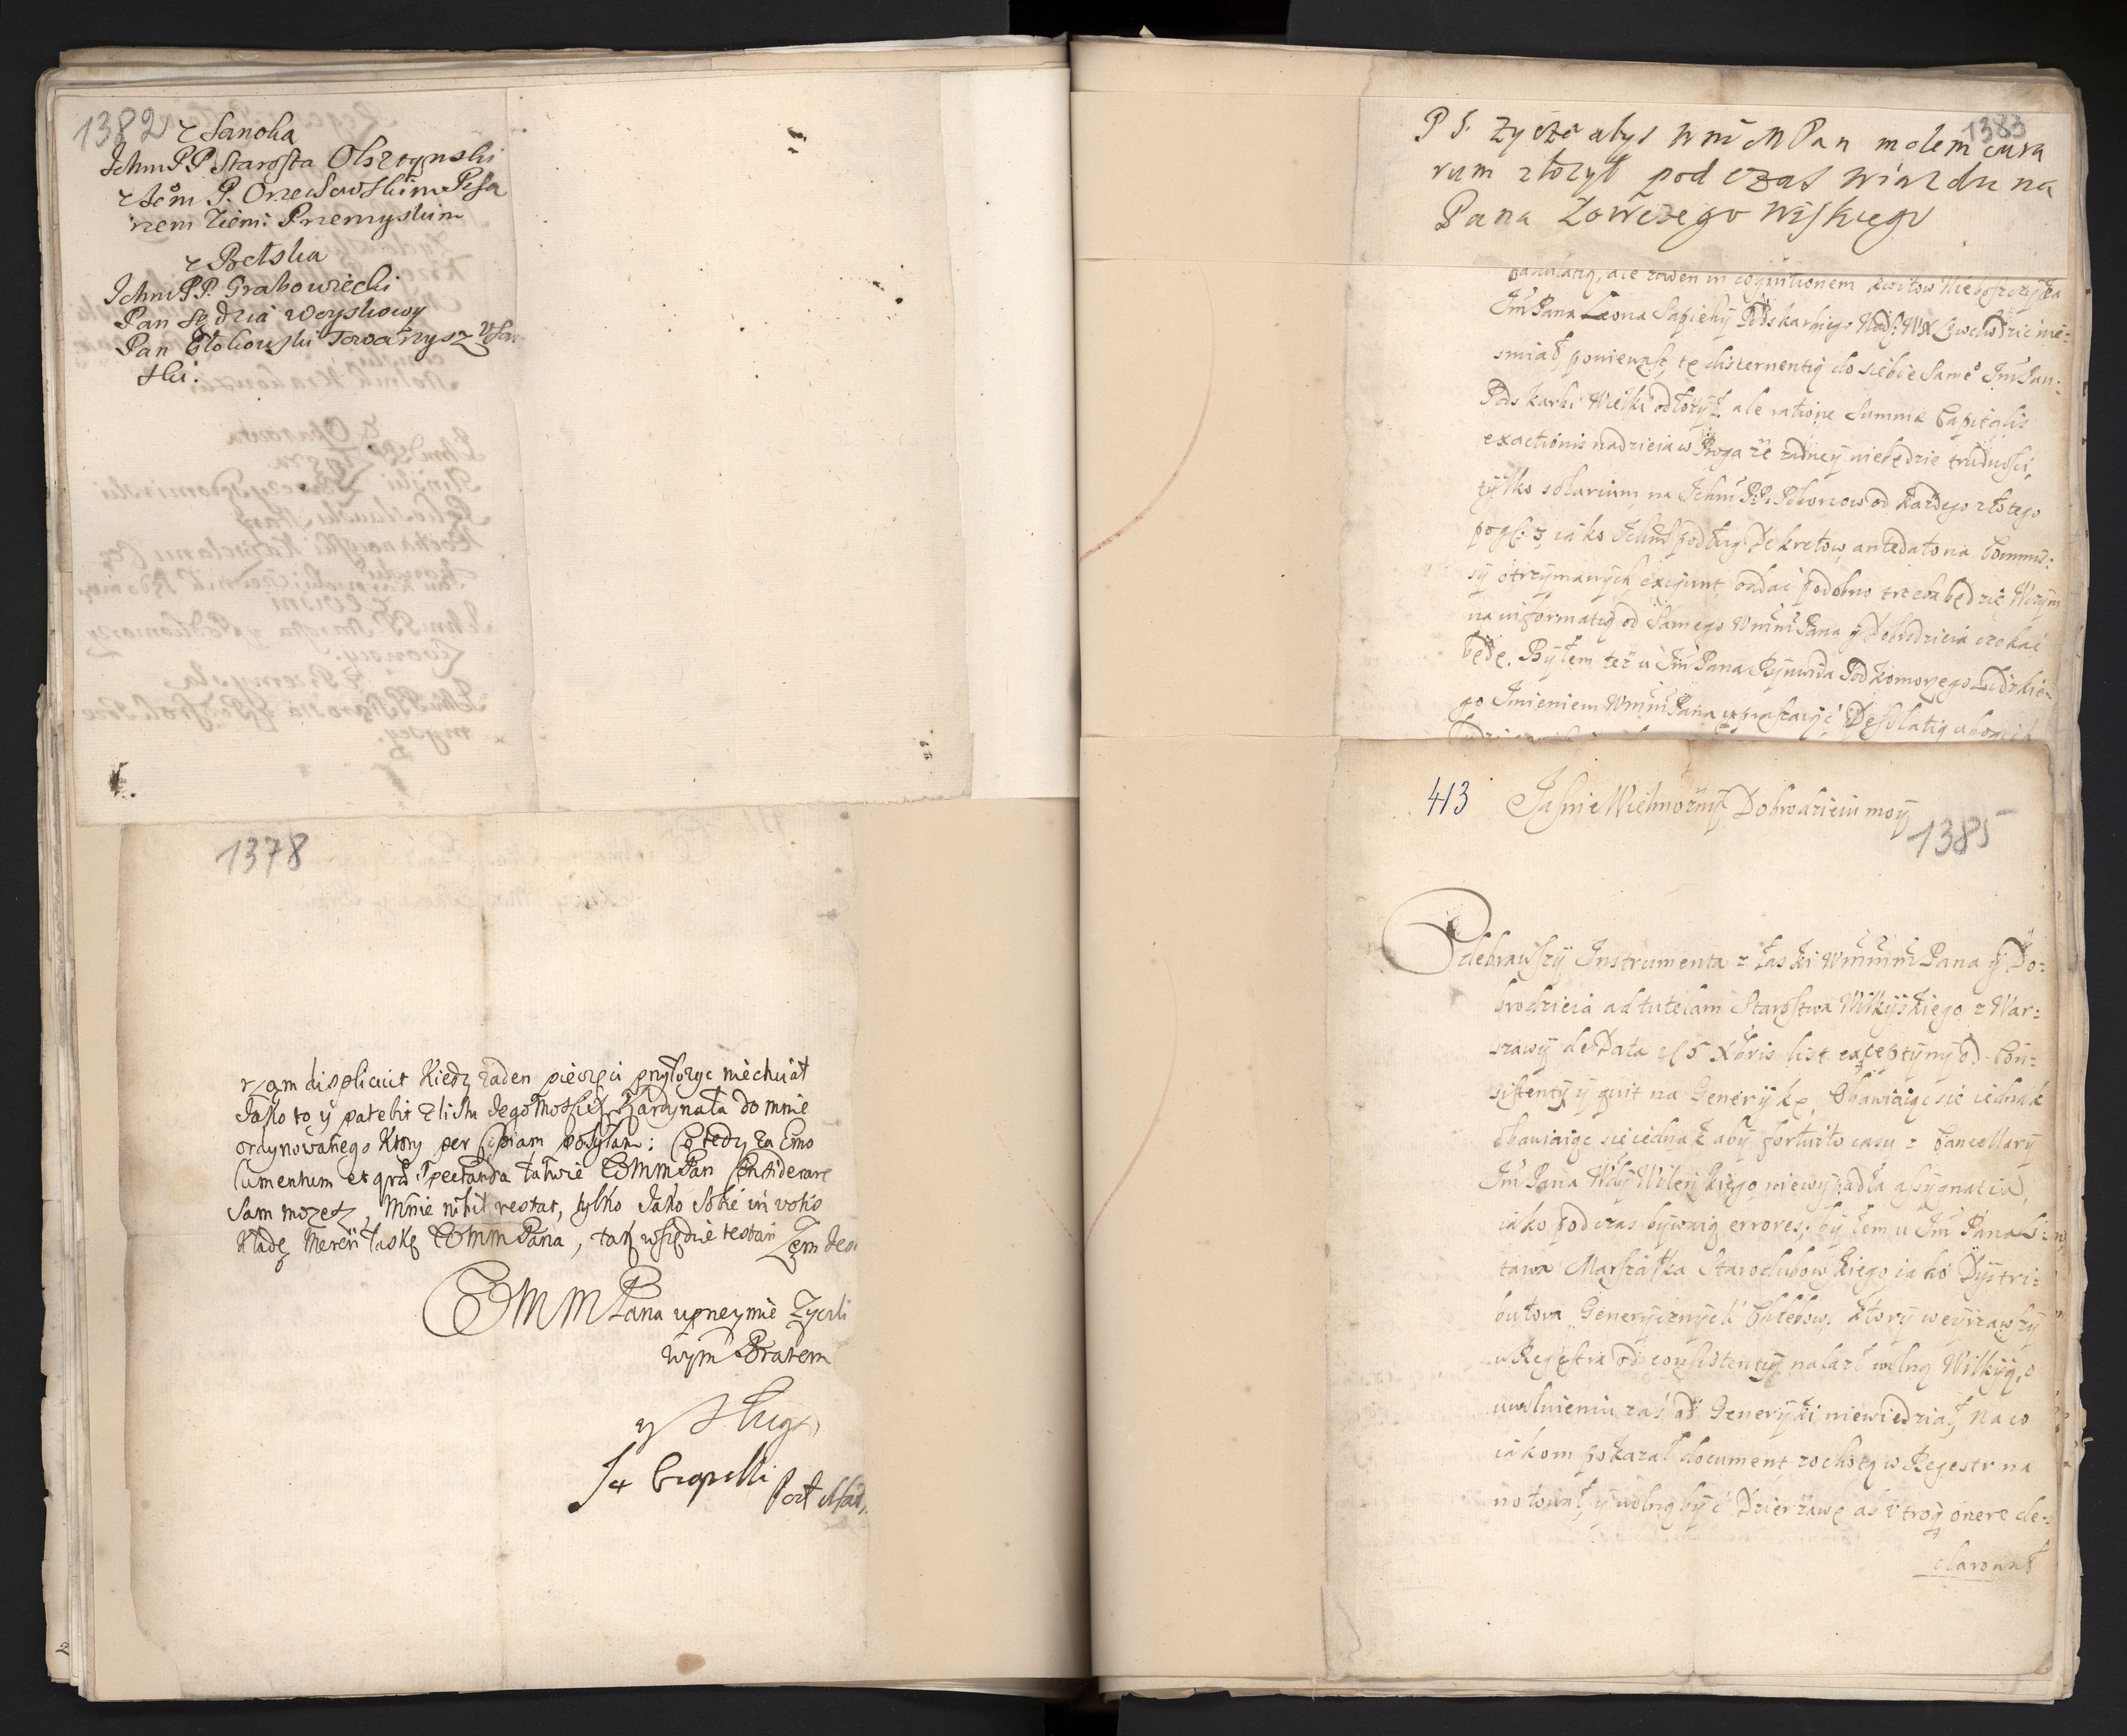 1382
z Sanoka
Ichm PP Starosta Olsztynski
z Jem P. Orzechowskim Pisa
rzem Ziemi Przemyskim
z Bełska
Ichm PP. Grabowiecki
Pan Sędzia Woyskowy
Pan Głokowski Towarzysz Usar
ski.
1378
displicuit Kiedy żaden pieczęci przyłożyc niechciał
Jako to y patebit z listu Jegomości Kardynała do mnie
ordynowanego Ktory per Copiam posyłam: Co tedy za Emo
lumentum et spectanda łatwie WMMPan Considerare
Sam mozesz, Mnie nihil restat, tylko Jako Sobie in voto
Kładę łaskę WMMPana, tak wszędzie testari Zem Jest
WMMPana uprzeymie Zyczli
wym Bratem
y Sługą
1383
PS. zyczę abys WMMPan molem cura
rum złozył pod czas wiazdu na
Pana Łowczego
in cognitionem kwitow Nieboszczyka
Jm Pana Leona Sapiehy Podskarbiego Nad: WXL wchodzic nie=
smiał poniewasz tę discernentią do siebie Same° Jm Pan:
Podskarbi Wielki odłozył, ale ratione Summæ Capitalis
exactionis nadzieia w Bogu że żadney niebędzie trudności,
tylko solarium na Ichm P.P. Poborcow od kazdego złotego
po gr: 3, iako Ichm podług Dekretow antedato na Commis:
sÿ otrzymanych exigunt, oddać podobno trzeba będzie W czym
na informatią od Samego WMMPana ÿ Dobrodzieia czekać
będę. Byłem też u Jm Pana Podkomorzego Lidzkie=
go Imieniem WMMPana upraszaiąć Desolatią ubogich
413
Jasnie Wielmożnÿ Dobrodzieiu moÿ
1385
Odebrawszÿ Instrumenta z łaski WMMMPana ÿ Do=
brodzieia ad tutelam Starostwa Wilkÿiskiego z War=
szawÿ de Data 5 Xbris list exceptÿnÿ od Con=
sistentÿ ÿ qwit na Generÿkę, Obawiaiąc sie iednak
obawiaiąc sie iednak abÿ fortuito casu z Cancellarÿ
Jm Pana WdÿWilenskiego niewypadła assÿgnatia,
iako podczas bÿwaią errores, bÿłem u Jm Pana
Marszałka Starodubowskiego iako Dÿstri=
butora Generÿcznÿch Chlebow. Ktorÿ weÿrzawszÿ
w Regestra od consistentÿ nalazł wolną Wilkÿią, o
uwolnieniu zaś od Generÿki niewiedział, Na co
iakom pokazał document, zochotą w Regestr na
notował ÿ wolną bÿć Dzierżawę ab utroq onere de=
clarował